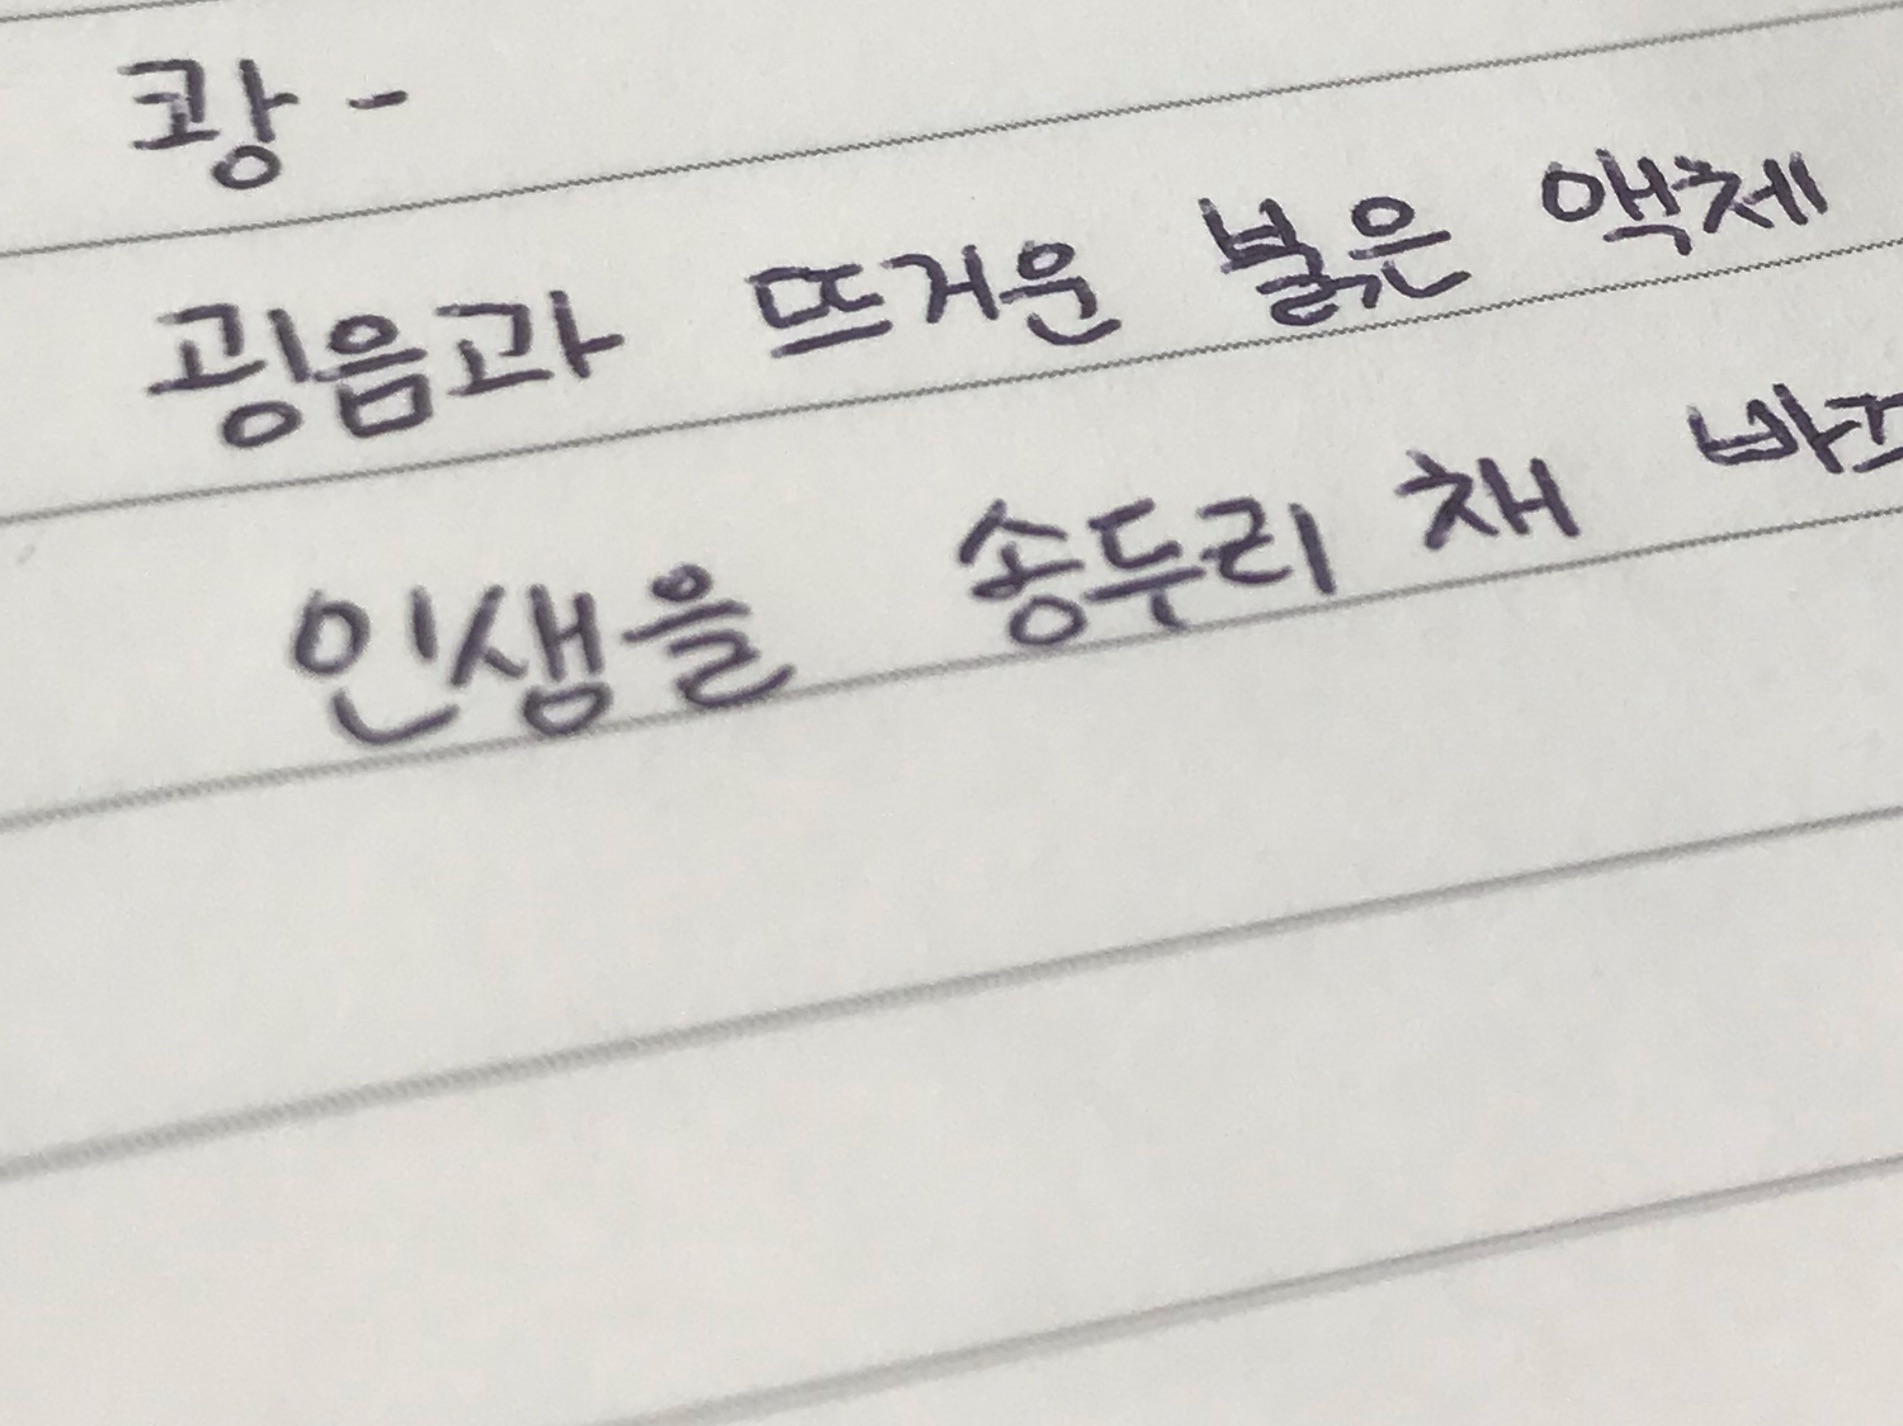 쾅 -
굉음과 뜨거운 붉은 액체
인생을 송두리 채